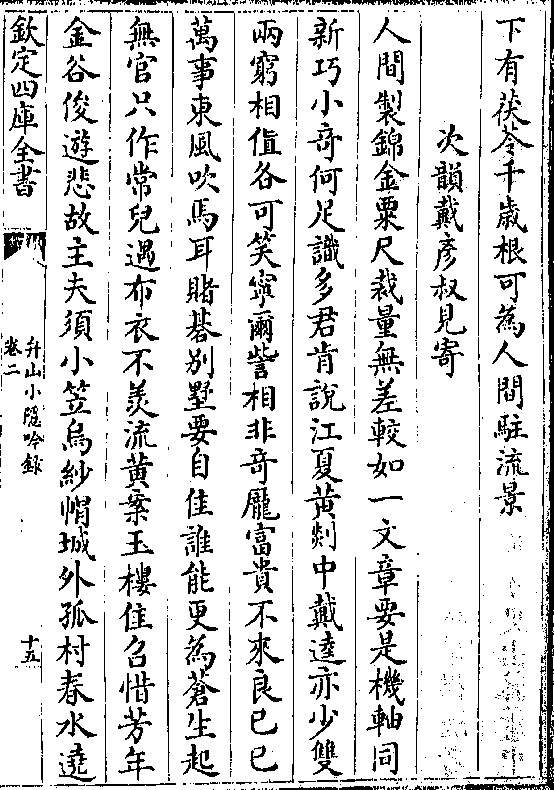 下有茯苓千歲根可為人間駐流景
次韻戴彥叔見寄
人間製錦金粟尺裁量無差較如一文章要是機軸同
新巧小奇何足識多君肯說江夏黄剡中戴逵亦少雙
兩窮相值各可笑寧爾訾相非奇厖富貴不來良已已
萬事東風吹馬耳賭碁別墅要自佳誰能更為蒼生起
無官只作常兒遇布衣不羨流黄案玉樓住召惜芳年
金谷俊遊悲故主夫須小笠烏紗帽城外孤村春水遶
欽定四庫全書
弁山小隠吟錄
卷二
十五